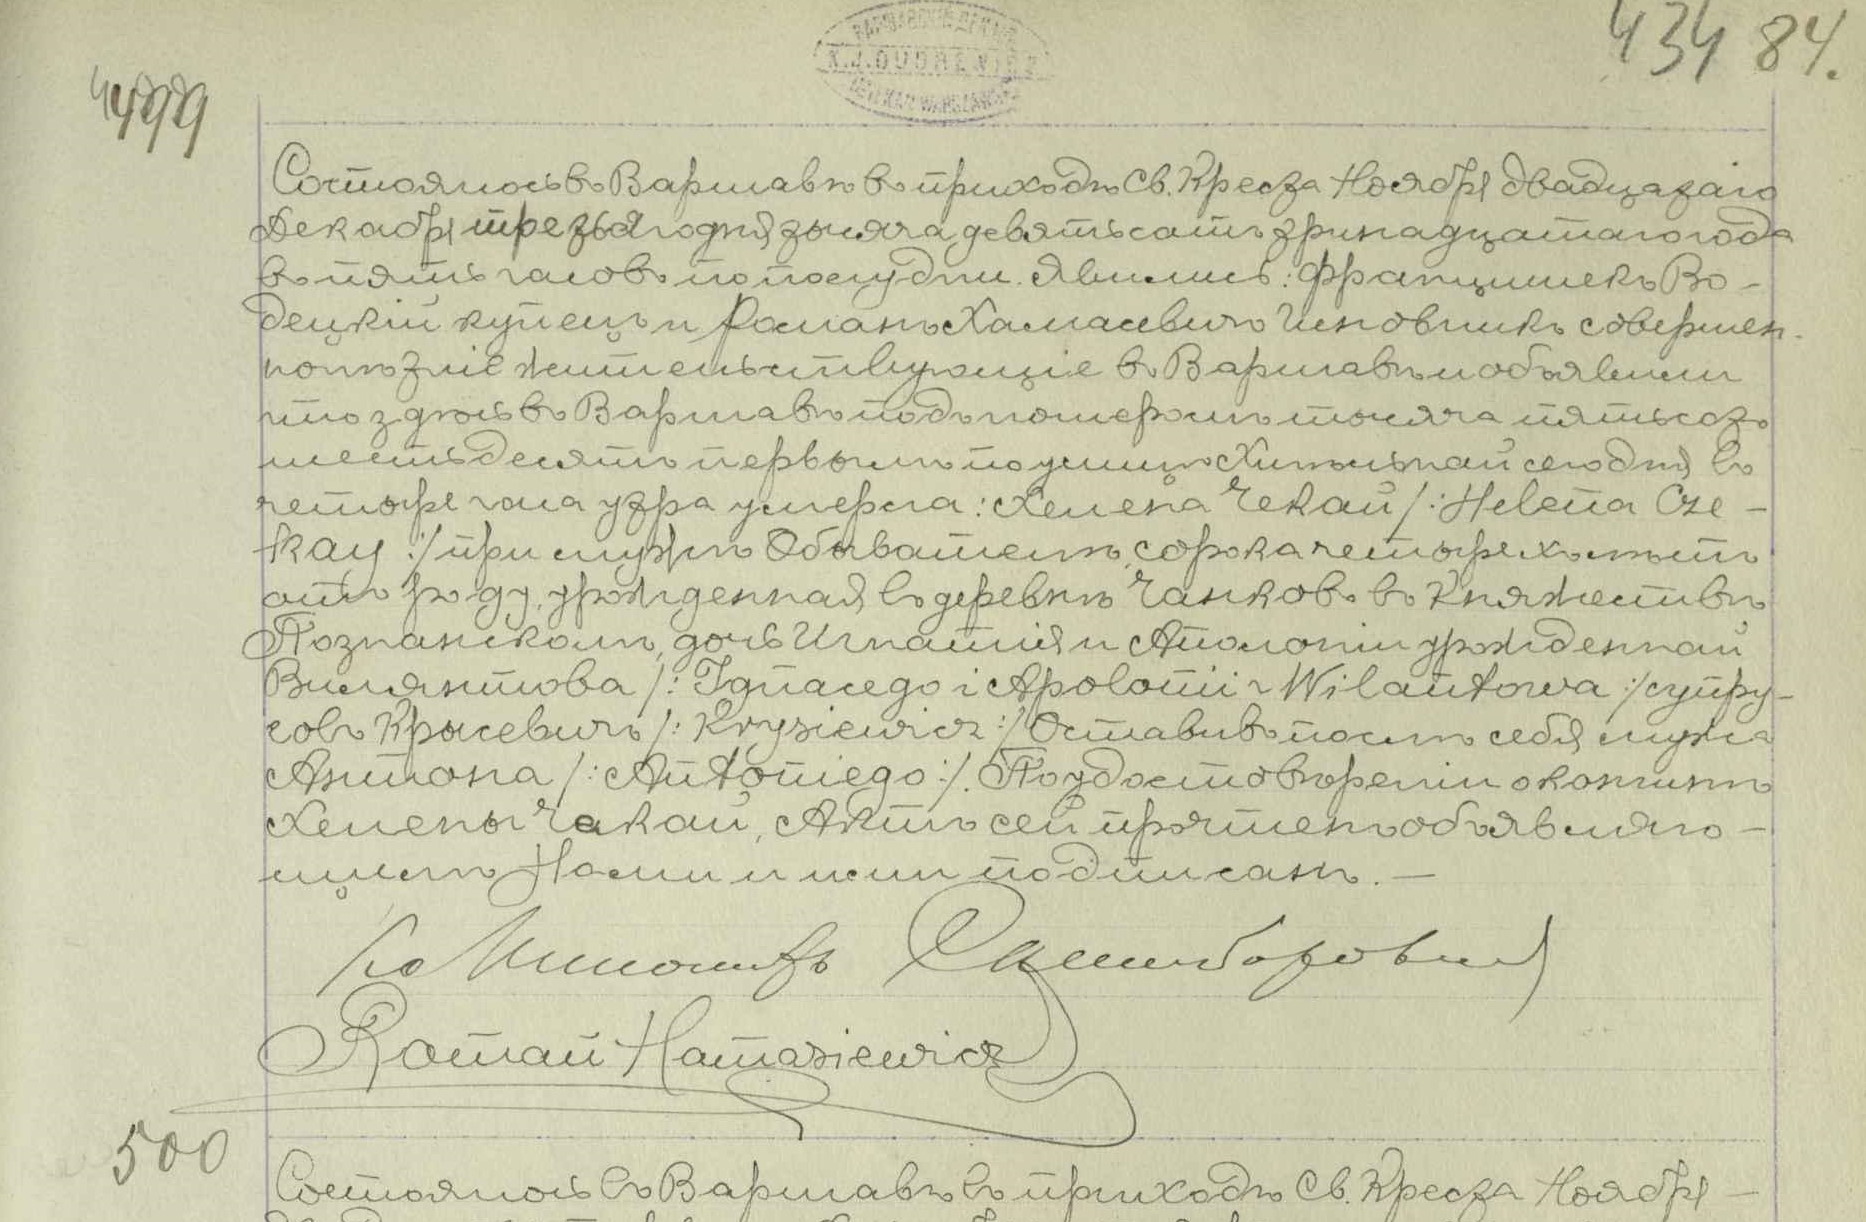 434 84.
499
Состоялось въ Варшавѣ въ приходѣ Св. Креста Ноября двадцатаго
Декабря третьяго дня тысяча девятьсотъ тринадцатаго года
въ пять часовъ по полудни. Явились: Францишекъ Во-
децкій купецъ и Романъ Хамасевичъ чиновникъ совершен-
нолѣтніе жительствующіе въ Варшавѣ и объявили
что здѣсь въ Варшавѣ подъ номеромъ тысяча пятьсотъ
шестьдесятъ первымъ по улицѣ сего дня въ
четыре часа утра умерла: Хелена Чекай /: Helena Cze-
kay :/ при мужѣ Обывателѣ, сорока четырехъ лѣтъ
отъ роду, урожденная въ деревнѣ Чанковъ въ Княжествѣ
Познанскомъ, дочь Игнатія и Аполоніи урожденной
Вилянтова /: Ignacego i Apolonii Wilantowa :/ супру-
говъ Крысевичъ /: Krysiewicz :/ Оставивъ послѣ себя мужа
Антона /: Antoniego :/. По удостовѣреніи о кончинѣ
Хелены Чекай, Актъ сей прочтенъ объявляю-
щимъ Нами и ими подписанъ. —
Roman Hamasiewicz
500
Состоялось въ Варшавѣ въ приходѣ Св. Креста Ноября —